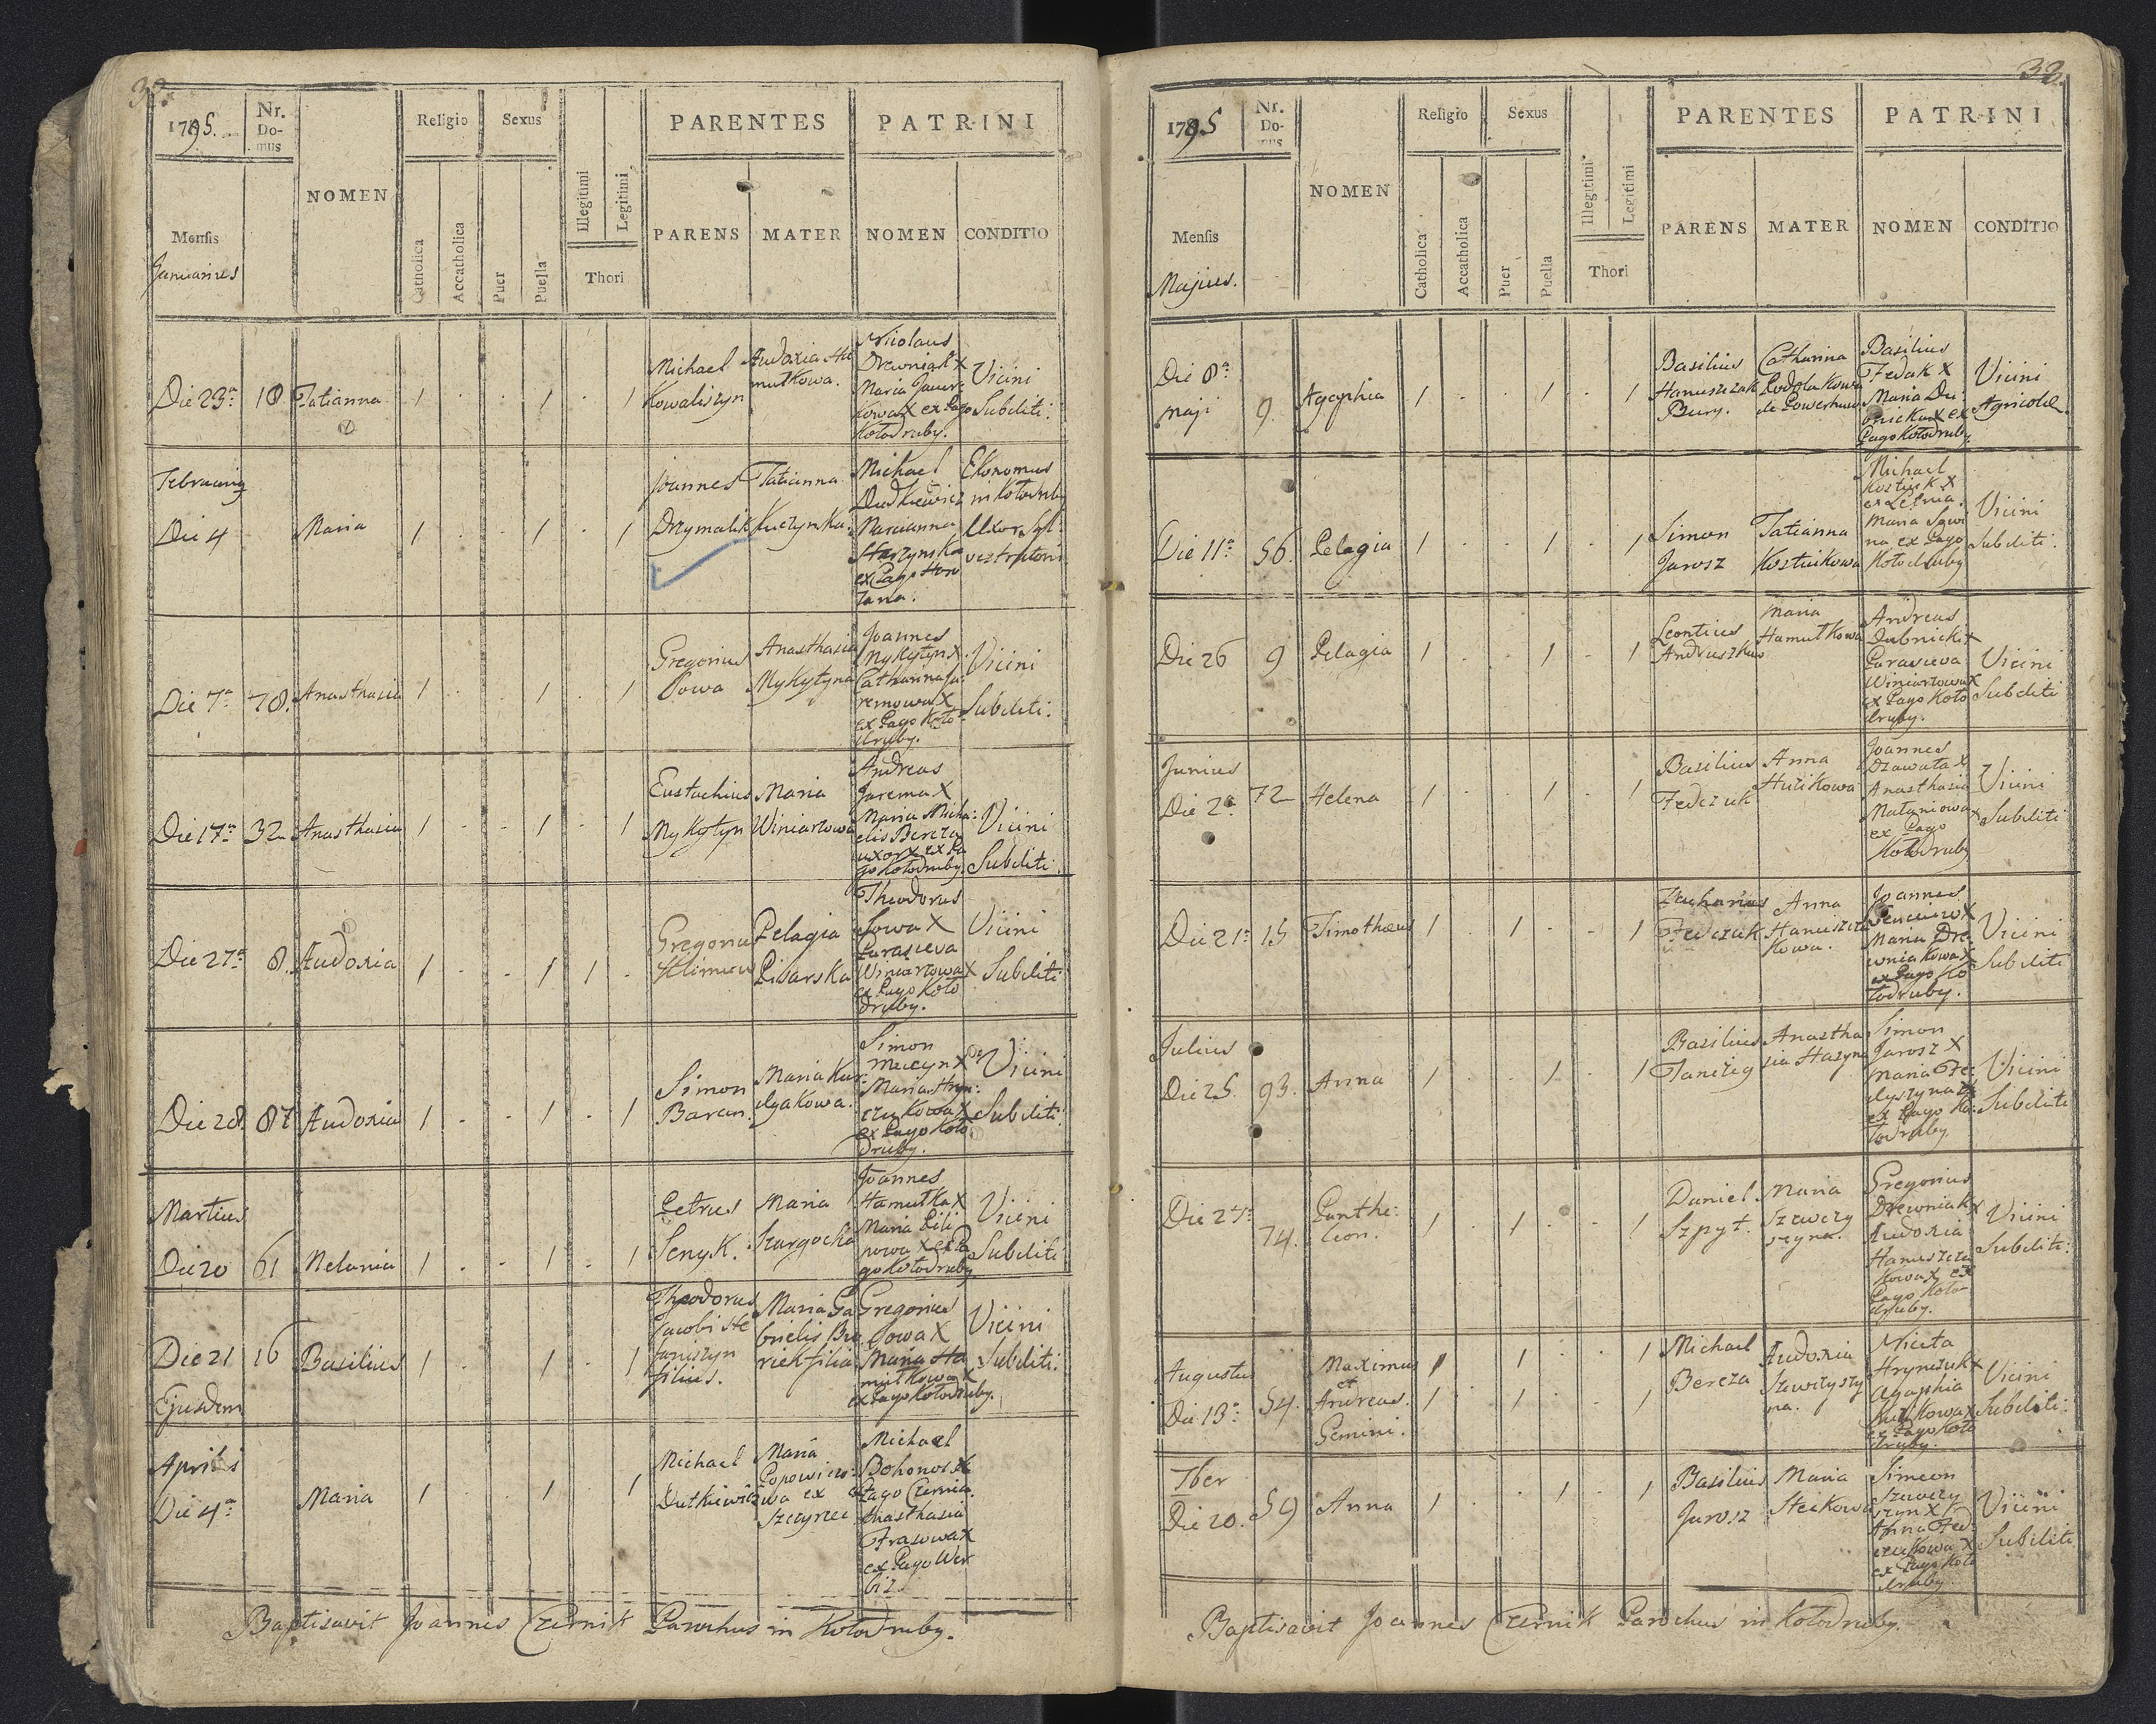 32.
1795.
Nr. Domus
NOMEN
Religio
Sexus
Illegitimi
Legitimi
PARENTES
PATRINI
Mensis
Januarius
Catholica
Accatholica
Puer
Puella
Thori
PARENS
MATER
NOMEN
CONDITIO
Die 23ª
18
Tatianna
1 . . 1 . 1
Michael
Kowaliszyn
Audoxia Ha
mutkowa.
Nicolaus
Drewniak X
Maria Jawor
kowa X ex Pago
Kołodruby.
Vicini
Subditi.
Februarius
Die 4
Maria
1 . . 1 . 1
Joannes
Drzymalik
Tatianna
Kuczynska.
Michael
Dudkiewicz
Marcianna
Starzynska
ex Pago Hor
Ekonomus
in Kołodruby
Uxor
Die 7ª
78.
Anasthasia
1 . . 1 . 1
Gregorius
Sowa
Anasthasia
Mykytyna
Joannes
Mykytyn X
Catharina Ja
remowa X
ex Pago Koło
druby.
Vicini
Subditi.
Die 17ª
32
Anasthasia
1 . . 1 . 1
Eustachius
Mykytyn
Maria
Winiarzowa
Andreas
Jarema X
Maria Micha
elis Bereza
uxor X ex Pa
go Kołodruby.
Vicini
Subditi.
Die 27ª
8.
Audoxia
1 . . 1 1 .
Gregorius
Klimów
Pelagia
Pisarska
Theodorus
Sowa X
Parasieva
Winiarzowa X
ex Pago Koło
druby.
Vicini
Subditi
Die 28.
87
Audoxia
1 . . 1 . 1
Simon
Baran.
Maria Kur
dyakowa.
Simon
Mecyn X
Maria Hryn
czukowa X
ex Pago Koło
druby.
Vicini
Subditi.
Martius
Die 20
61
Melania
1 . . 1 . 1
Petrus
Senyk.
Maria
Szargocka
Joannes
Hamutka X
Maria Pili
powa X ex Pa
go Kołodruby
Vicini
Subditi
Die 21
Ejusdem
16
Basilius
1 . 1 . 1
Theodorus
Jacobi Ste
faniszyn
filius.
Maria Ga
brielis
filia
Gregorius
Sowa X
Maria Ha
mutkowa X
ex Pago Kołodruby.
Vicini
Subditi.
Aprilis
Die 4ª
Maria
1 . . 1 . 1
Michael
Dutkiewicz
Maria
Popowiczo
wa ex
Szczyrzec
Michael
Bohonos X
Pago Czernia.
Anasthasia
Frasowa X
ex Pago Wer
biz.
Baptisavit Joannes Czernik Parochus in Kołodruby.
33.
1795
Nr. Domus
NOMEN
Religio
Sexus
Illegitimi
Legitimi
PARENTES
PATRINI
Mensis
Majus.
Catholica
Accatholica
Puer
Puella
Thori
PARENS
MATER
NOMEN
CONDITIO
Die 8ª
Maji
9.
Agaphia
1 . . 1 . 1
Basilius
Hanuszczak
Bury.
Catharina
Podolakowa
Basilius
Fedak X
Maria Du
bnicka X ex
Pago Kołodruby
Vicini
Agricolæ.
Die 11ª
56.
Pelagia
1 . . 1 . 1
Simon
Jarosz
Tatianna
Kostiukowa
Michael
Kostiuk X
ex Letnia.
Maria Sowi
na ex Pago
Kołodruby
Vicini
Subditi.
Die 26
9
Pelagia
1 . . 1 . 1
Leontius
Andruszków
Maria
Hamutkowa
Andreas
Dubnicki X
Parasieva
Winiarzowa X
ex Pago Koło
druby.
Vicini
Subditi
Junius
Die 2ª
72
Helena
1 . . 1 . 1
Basilius
Fedczuk
Anna
Hulikowa
Joannes
Dzawała X
Anasthasia
Matyniowa X
ex Pago
Kołodruby
Vicini
Subditi
Die 21ª
15
Timotheus
1 . 1 . . 1
Zacharias
Fedczuk
Anna
Hanuszcza
kowa.
Joannes
Maria Dre
wniakowa X
ex Pago Ko
łodruby.
Vicini
Subditi
Julius
Die 25.
93.
Anna
1 . . 1 . 1
Basilius
Anastha
sia Hasyna
Simon
Jarosz X
Maria Fe
dyszyna X
ex Pago Ko
łodruby
Vicini
Subditi
Die 27ª
74.
Panthe
leon.
1 . 1 . . 1
Daniel
Szpyt.
Maria
Szewczy
szyna.
Gregorius
Drewniak X
Audoxia
Hanuszcza
kowa X ex
Pago Koło
druby.
Vicini
Subditi.
Augustus
Die 13ª
54.
Maximus
et
Andreas.
Gemini.
1 1 . . 1
1 . 1 . . 1
Michael
Bereza
Audoxia
Szewczyszy
na.
Niceta
Hrynczuk X
Agaphia
ex Pago Koło
druby.
Vicini
Subditi.
7ber
Die 20.
59
Anna
1 . . 1 . 1
Basilius
Jarosz
Maria
Steckowa
Simeon
Szewczy
szyn X
Anna Fed
czukowa X
ex Pago Koło
druby.
Vicini
Subditi
Baptisavit Joannes Czernik Parochus in Kołodruby.